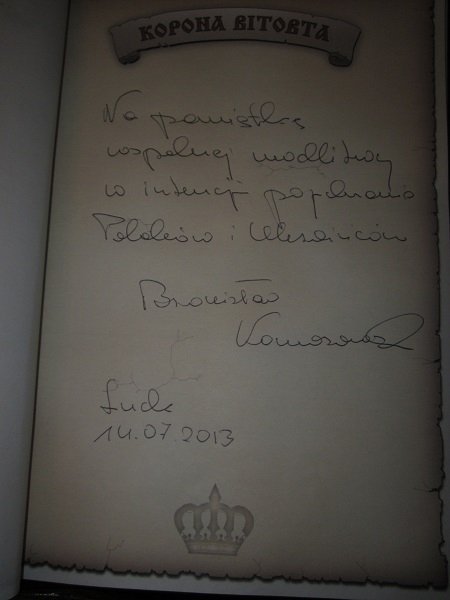 КОРОНА ВІТОВТА
Na pamiątkę
wspólnej modlitwy
w intencji pojednania
Polaków i Ukraińców
Bronisław
Komorowski
Łuck
14.07.2013